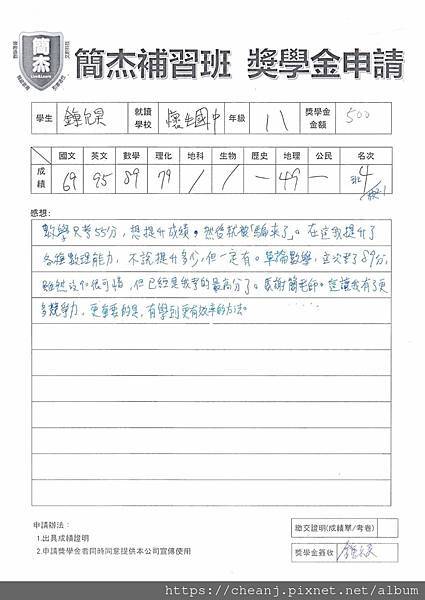 簡杰
Live&Learn
簡杰補習班 獎學金申請
學生 就讀學校 懷生國中 年級 八 獎學金金額 500
成績 國文 英文 數學 理化 地科 生物 歷史 地理 公民 名次
69 95 89 79 / / — 49 — 班4
感想:
數學只考55分,想提升成績。然後就被「騙來了」。在這我提升了
各種數理能力,不說提升多少,但一定有。單論數學,這次考了89分,
雖然沒90很可惜,但已經是我考的最高分了。感謝簡老師。這讓我有了更
多競爭力,更重要的是,有學到更有效率的方法。
申請辦法:
1.出具成績證明
2.申請獎學金者同時同意提供本公司宣傳使用
繳交證明(成績單/考卷)
獎學金簽收
https://cheanj.pixnet.net/album